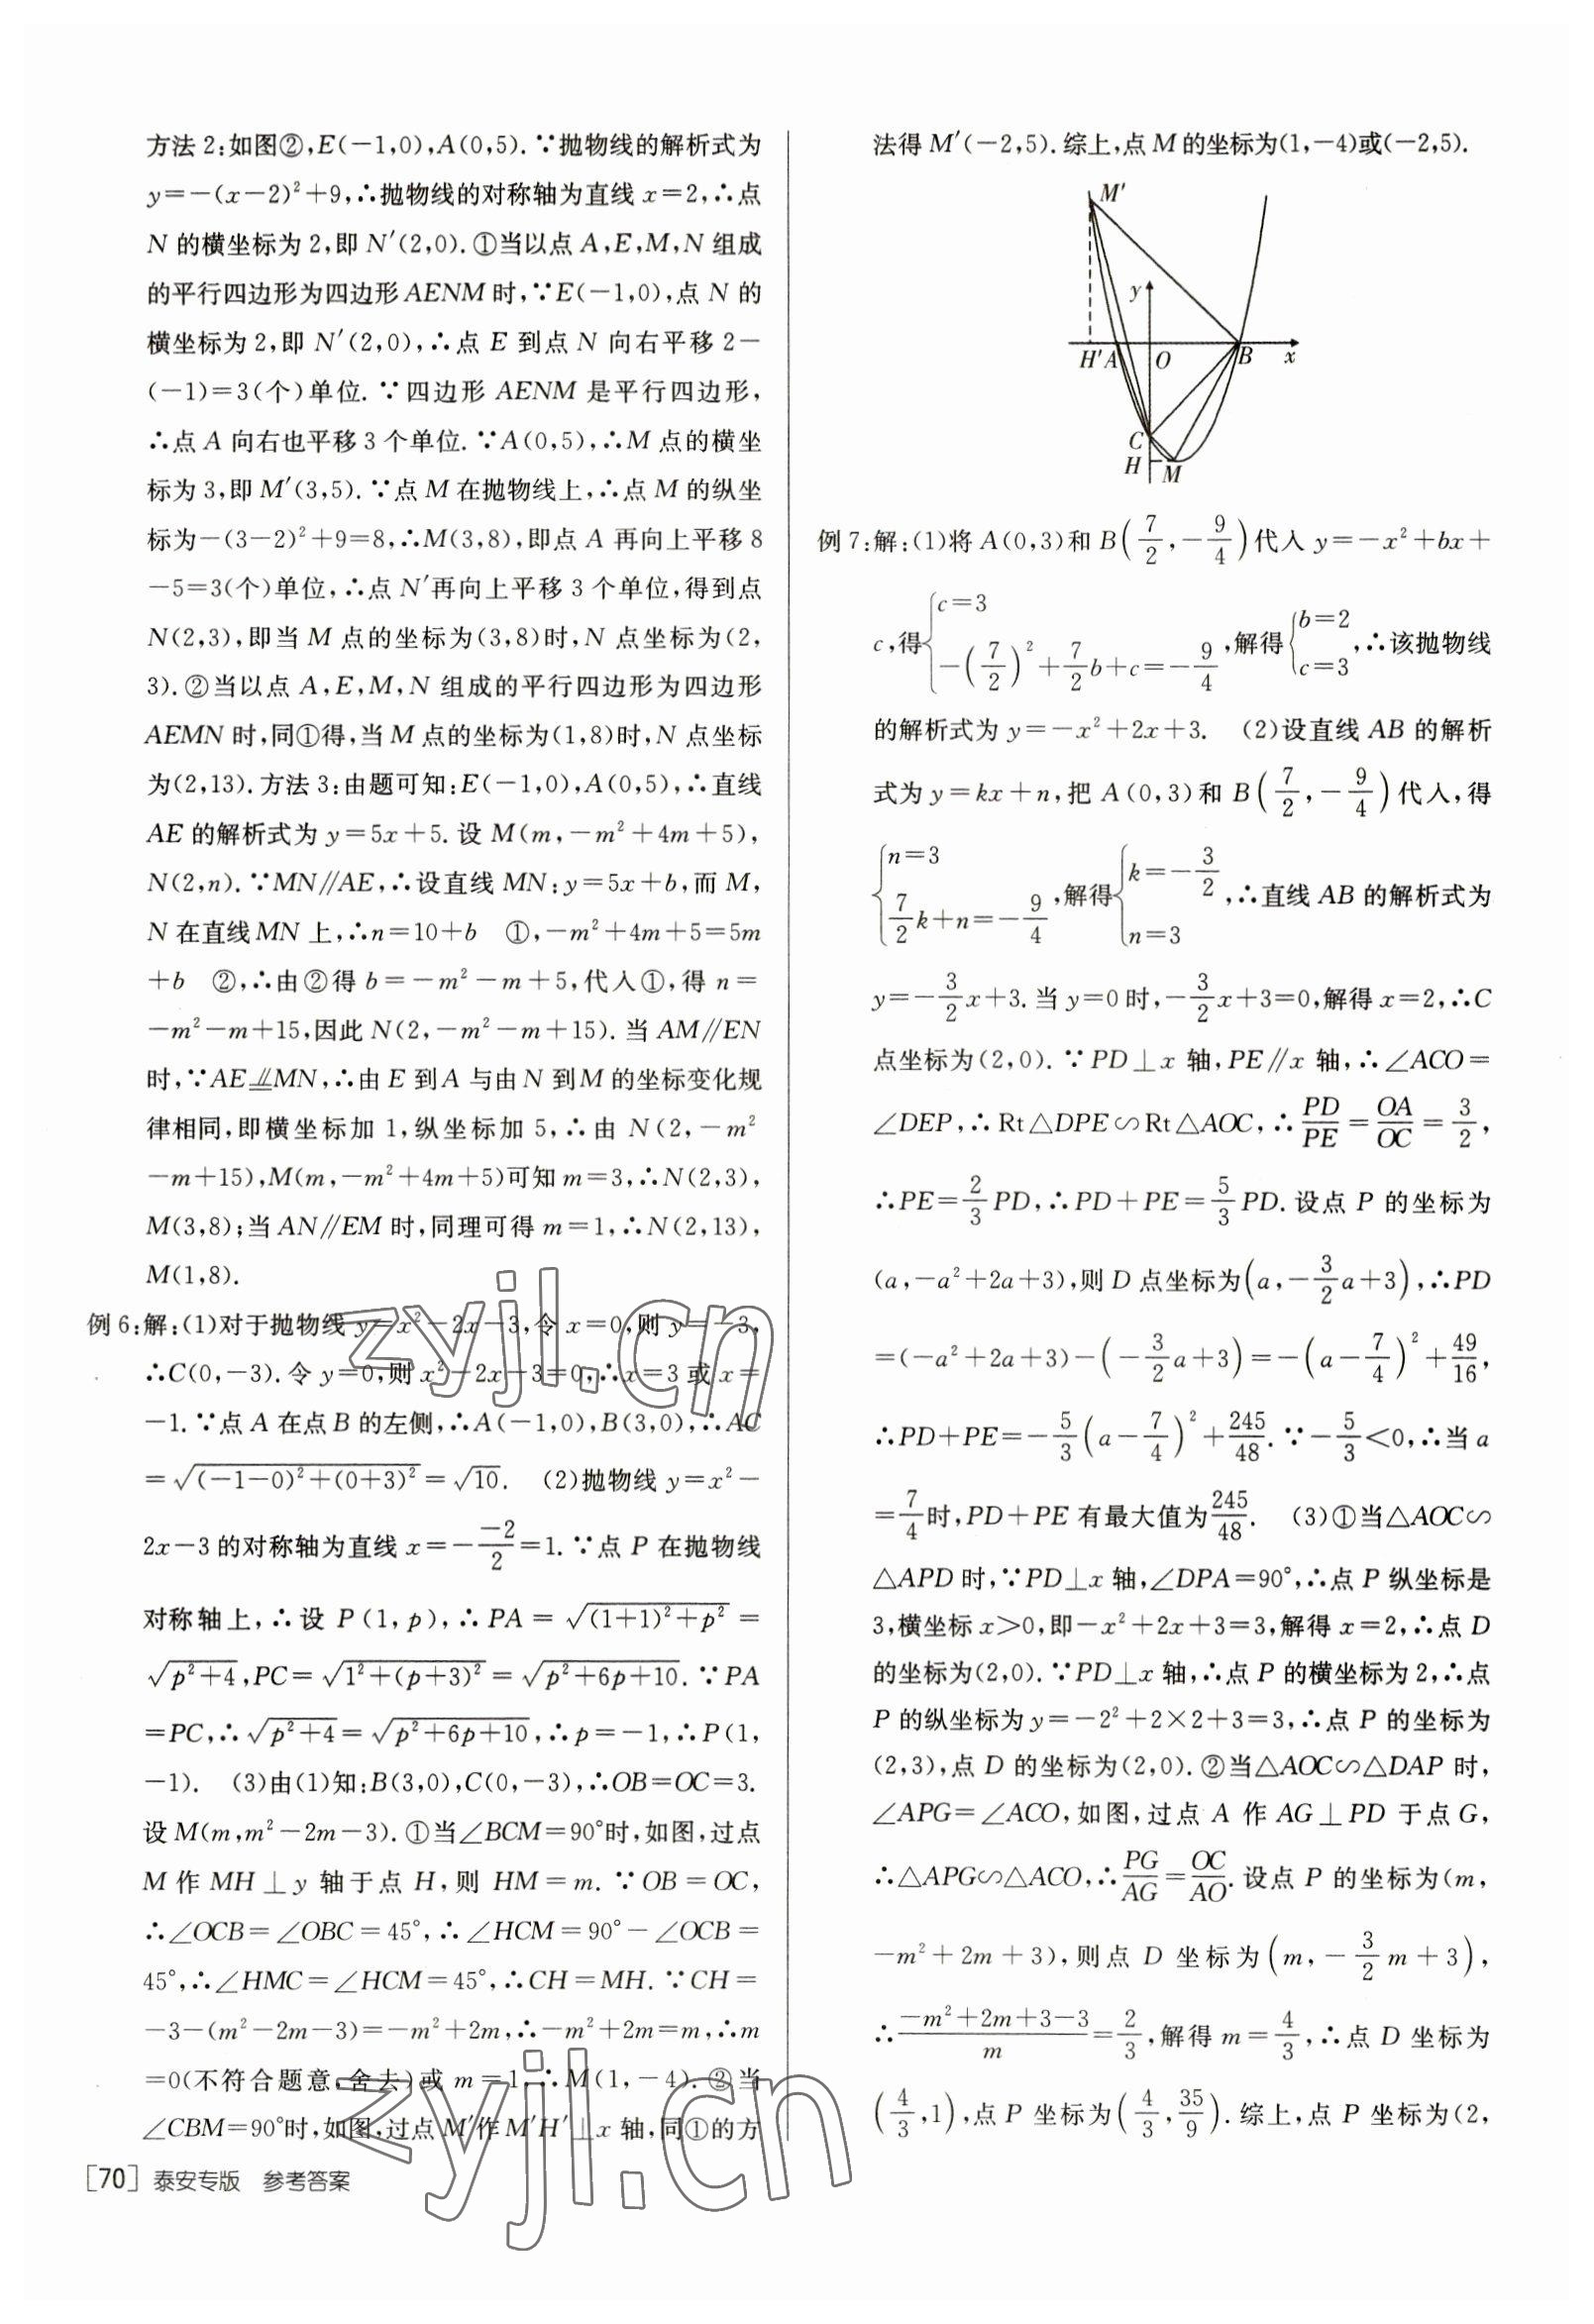 方法2:如图②,E(-1,0),A(0,5).∵抛物线的解析式为
y=-(x-2)²+9,∴抛物线的对称轴为直线x=2,∴点
N的横坐标为2,即N′(2,0).①当以点A,E,M,N组成
的平行四边形为四边形AENM时,∵E(-1,0),点N的
横坐标为2,即N′(2,0),∴点E到点N向右平移2-
(-1)=3(个)单位.∵四边形AENM是平行四边形,
∴点A向右也平移3个单位.∵A(0,5),∴M点的横坐
标为3,即M′(3,5).∵点M在抛物线上,∴点M的纵坐
标为-(3-2)²+9=8,∴M(3,8),即点A再向上平移8
-5=3(个)单位,∴点N′再向上平移3个单位,得到点
N(2,3),即当M点的坐标为(3,8)时,N点坐标为(2,
3).②当以点A,E,M,N组成的平行四边形为四边形
AEMN时,同①得,当M点的坐标为(1,8)时,N点坐标
为(2,13).方法3:由题可知:E(-1,0),A(0,5),∴直线
AE的解析式为y=5x+5.设M(m,-m²+4m+5),
N(2,n).∵MN∥AE,∴设直线MN:y=5x+b,而M,
N在直线MN上,∴n=10+b ①,-m²+4m+5=5m
+b ②,∴由②得b=-m²-m+5,代入①,得n=
-m²-m+15,因此N(2,-m²-m+15).当AM∥EN
时,∵AE⫽MN,∴由E到A与由N到M的坐标变化规
律相同,即横坐标加1,纵坐标加5,∴由N(2,-m²
-m+15),M(m,-m²+4m+5)可知m=3,∴N(2,3),
M(3,8);当AN∥EM时,同理可得m=1,∴N(2,13),
M(1,8).
例6:解:(1)对于抛物线y=x²-2x-3,令x=0,则y=-3,
∴C(0,-3).令y=0,则x²-2x-3=0,∴x=3或x=
-1.∵点A在点B的左侧,∴A(-1,0),B(3,0),∴AC
=√((-1-0)²+(0+3)²)=√10. (2)抛物线y=x²-
2x-3的对称轴为直线x=-(-2)/2=1.∵点P在抛物线
对称轴上,∴设P(1,p),∴PA=√((1+1)²+p²)=
√(p²+4),PC=√(1²+(p+3)²)=√(p²+6p+10).∵PA
=PC,∴√(p²+4)=√(p²+6p+10),∴p=-1,∴P(1,
-1). (3)由(1)知:B(3,0),C(0,-3),∴OB=OC=3.
设M(m,m²-2m-3).①当∠BCM=90°时,如图,过点
M作MH⊥y轴于点H,则HM=m.∵OB=OC,
∴∠OCB=∠OBC=45°,∴∠HCM=90°-∠OCB=
45°,∴∠HMC=∠HCM=45°,∴CH=MH.∵CH=
-3-(m²-2m-3)=-m²+2m,∴-m²+2m=m,∴m
=0(不符合题意,舍去)或m=1,∴M(1,-4).②当
∠CBM=90°时,如图,过点M′作M′H′⊥x轴,同①的方
法得M′(-2,5).综上,点M的坐标为(1,-4)或(-2,5).
M′
y
H′ A O B x
C
H M
例7:解:(1)将A(0,3)和B(7/2,-9/4)代入y=-x²+bx+
c,得{c=3 -(7/2)²+7/2b+c=-9/4,解得{b=2 c=3,∴该抛物线
的解析式为y=-x²+2x+3. (2)设直线AB的解析
式为y=kx+n,把A(0,3)和B(7/2,-9/4)代入,得
{n=3 7/2k+n=-9/4,解得{k=-3/2 n=3,∴直线AB的解析式为
y=-3/2x+3.当y=0时,-3/2x+3=0,解得x=2,∴C
点坐标为(2,0).∵PD⊥x轴,PE∥x轴,∴∠ACO=
∠DEP,∴Rt△DPE∽Rt△AOC,∴PD/PE=OA/OC=3/2,
∴PE=2/3PD,∴PD+PE=5/3PD.设点P的坐标为
(a,-a²+2a+3),则D点坐标为(a,-3/2a+3),∴PD
=(-a²+2a+3)-(-3/2a+3)=-(a-7/4)²+49/16,
∴PD+PE=-5/3(a-7/4)²+245/48.∵-5/3<0,∴当a
=7/4时,PD+PE有最大值为245/48. (3)①当△AOC∽
△APD时,∵PD⊥x轴,∠DPA=90°,∴点P纵坐标是
3,横坐标x>0,即-x²+2x+3=3,解得x=2,∴点D
的坐标为(2,0).∵PD⊥x轴,∴点P的横坐标为2,∴点
P的纵坐标为y=-2²+2×2+3=3,∴点P的坐标为
(2,3),点D的坐标为(2,0).②当△AOC∽△DAP时,
∠APG=∠ACO,如图,过点A作AG⊥PD于点G,
∴△APG∽△ACO,∴PG/AG=OC/AO.设点P的坐标为(m,
-m²+2m+3),则点D坐标为(m,-3/2m+3),
∴(-m²+2m+3-3)/m=2/3,解得m=4/3,∴点D坐标为
(4/3,1),点P坐标为(4/3,35/9).综上,点P坐标为(2,
[70] 泰安专版 参考答案
zyjl.cn
zyjl.cn